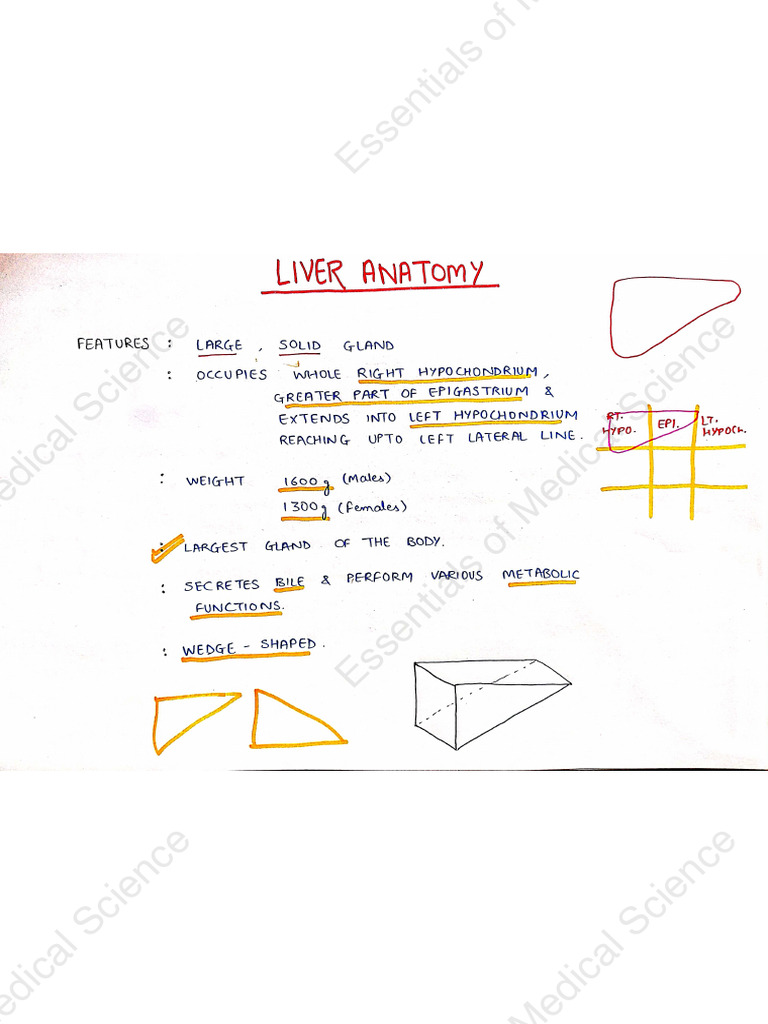 LIVER ANATOMY
FEATURES : LARGE , SOLID GLAND
: OCCUPIES WHOLE RIGHT HYPOCHONDRIUM ,
GREATER PART OF EPIGASTRIUM &
EXTENDS INTO LEFT HYPOCHONDRIUM
REACHING UPTO LEFT LATERAL LINE .
RT. HYPO.
EPI.
LT. HYPOCH.
: WEIGHT 1600 g (Males)
1300 g (Females)
: LARGEST GLAND OF THE BODY.
: SECRETES BILE & PERFORM VARIOUS METABOLIC
FUNCTIONS.
: WEDGE - SHAPED .
Essentials of M
edical Science
Essentials of Medical Science
edical Science
Medical Science